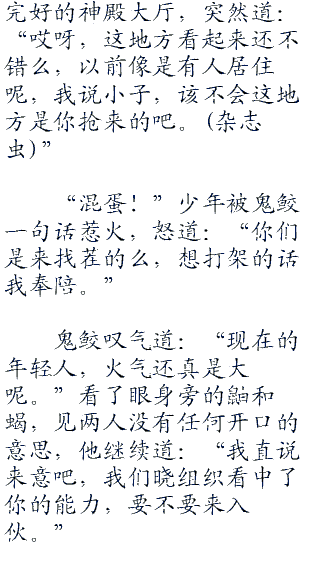 完好的神殿大厅，突然道：
“哎呀，这地方看起来还不
错么，以前像是有人居住
呢，我说小子，该不会这地
方是你抢来的吧。(杂志
虫)”
“混蛋！”少年被鬼鲛
一句话惹火，怒道：“你们
是来找茬的么，想打架的话
我奉陪。”
鬼鲛叹气道：“现在的
年轻人，火气还真是大
呢。”看了眼身旁的鼬和
蝎，见两人没有任何开口的
意思，他继续道：“我直说
来意吧，我们晓组织看中了
你的能力，要不要来入
伙。”